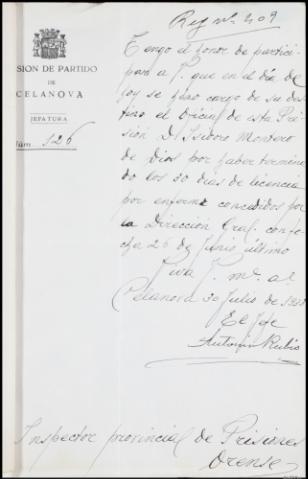 Reg nº 209
SION DE PARTIDO
DE
CELANOVA
JEFATURA
Núm. 126
Tengo el honor de partici-
par a V. que en el día de
hoy se hizo cargo de su des-
tino el Oficial de esta Pri-
sión D. Isidoro Montero
de Dios por haber termina-
do los 30 dias de licencia
por enfermo concedidos por
la Dirección Gral. con fe-
cha 26 de Junio último
Viva V. m. a.
Celanova 30 Julio de
El Jefe
Antonio Rubio
Inspector provincial de Prisiones
Orense